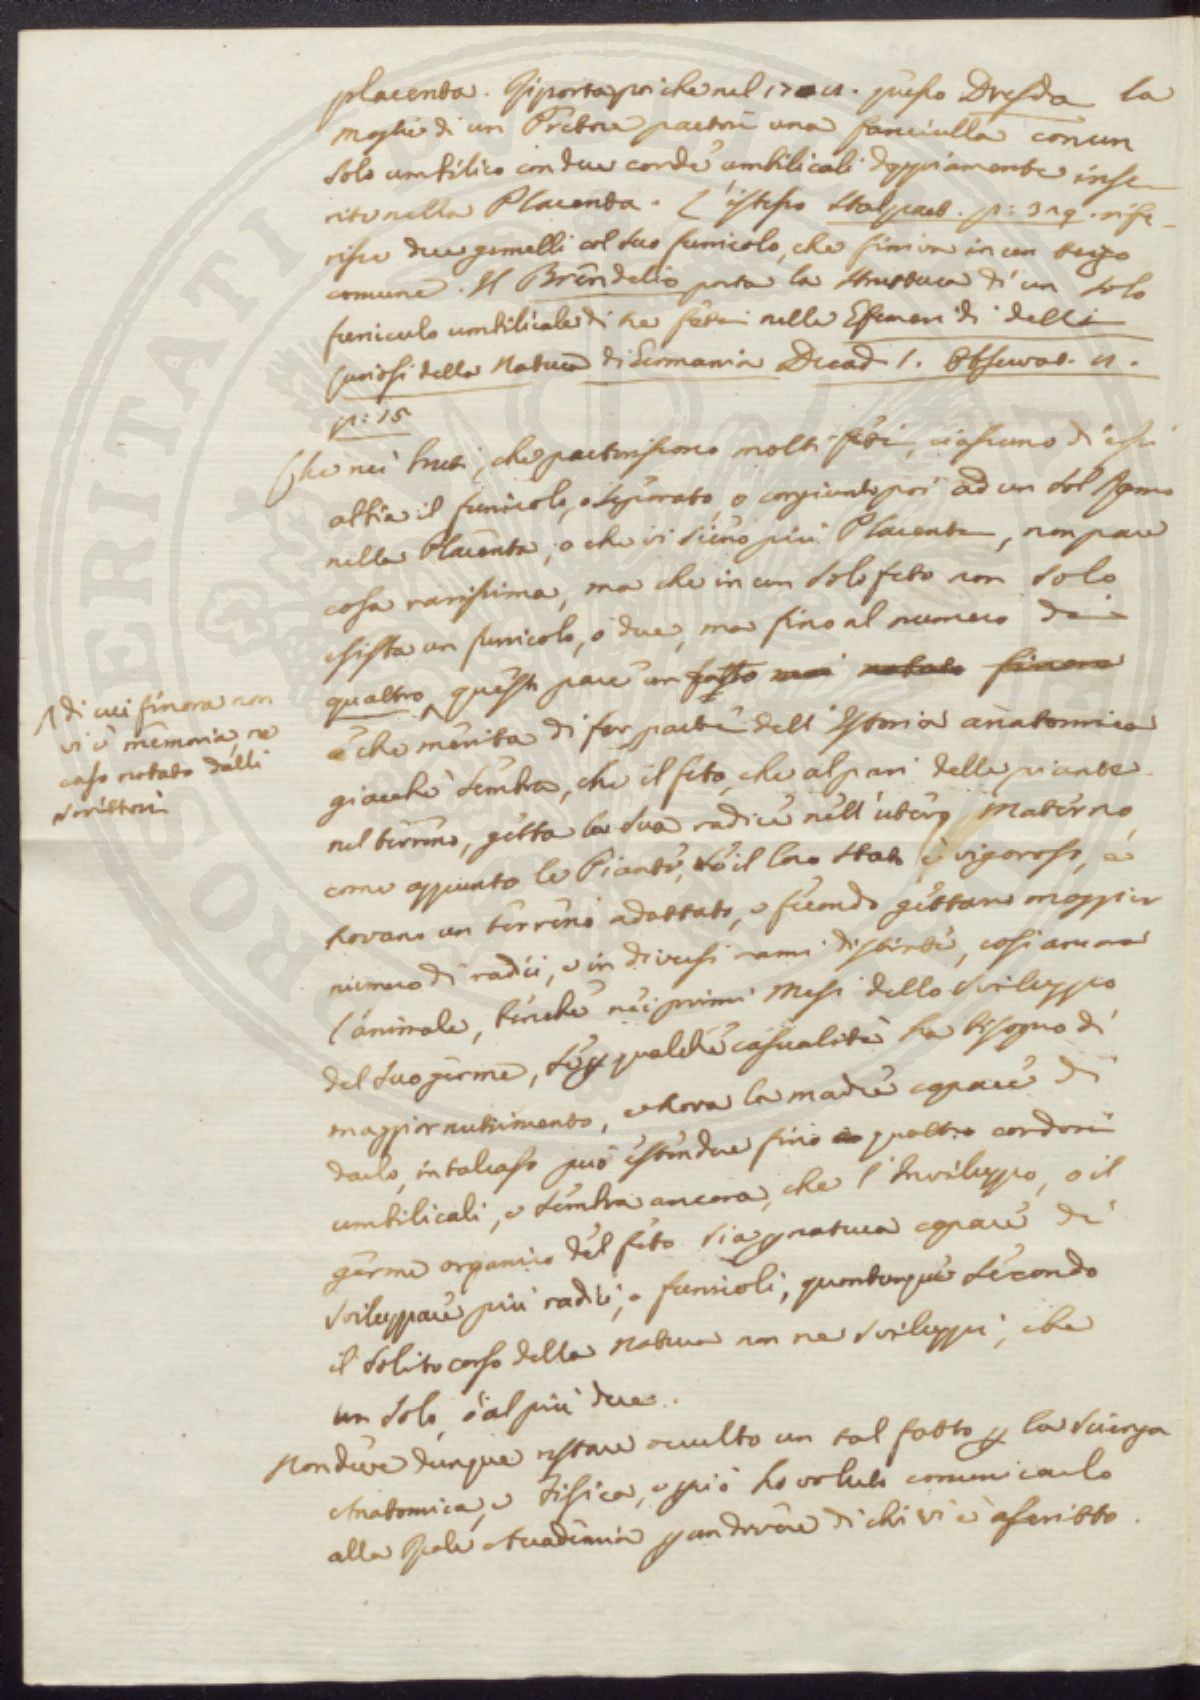 placenta. Riporta poi che nel presso Dresda la
moglie di un Pretore partorì una fanciulla con un
solo umbilico con due corde umbilicali doppiamente inse
rite nella Placenta. L'istesso Stalpart. p: 319. rife-
risce due gemelli col suo funicolo, che finiva in un
comune. Il Brendelio porta la struttura di un solo
funiculo umbilicale di tre feti nelle Efemeridi delli
Curiosi della Natura di Germania Decad. 1. Observat. 
p: 15
Che nei bruti, che partoriscono molti feti, ciascuno di essi
abbia il funicolo, o separato, o congiunto poi ad un sol Ramo
nella Placenta, o che vi sieno più Placente, non pare
cosa rarissima, ma che in un solo feto non solo
esista un funicolo, o due, ma fino al numero di
quattro, questi pare un fatto mai notato finora
di cui finora non
vi è memoria, ne
caso notato dalli
scrittori
e che merita di far parte dell'Istoria anatomica
giacchè sembra, che il feto, che al pari delle piante
nel terreno, getta la sua radice nell'utero Materno,
come appunto le Piante, se il loro stato è vigoroso, e
trovano un terreno adattato, e fecondo gettano maggior
numero di radici, e in diversi rami distinte, così ancora
l'animale, benchè nei primi Mesi dello sviluppo
del suo germe, se p qualche casualità ha bisogno di
maggior nutrimento, e trova la madre capace di
darlo, in tal caso può estendere fino a quattro cordoni
umbilicali, e sembra ancora, che l'Inviluppo, o il
germe organico del feto sia p natura capace di
sviluppare più radici, o funicoli, quantunque secondo
il solito corso della Natura non ne sviluppi, che
un solo, o al più due.
Non deve dunque restare occulto un tal fatto p la Scienza
Anatomica, e Fisica, e perciò ho voluto comunicarlo
alla Reale Accademia p un dovere di chi vi è ascritto.
SORS
VERITATI